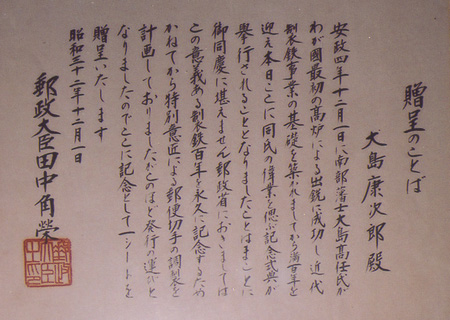 贈呈のことば
大島康次郎殿
安政四年十二月一日に南部藩士大島高任氏が
わが國最初の高炉による出銑に成功し近代
製鉄事業の基礎を築かれましてから満百年を
迎え本日ここに同氏の偉業を偲ぶ記念式典が
挙行されることとなりましたことはまことに
御同慶に堪えません郵政省におきましては
この意義ある製鉄百年を永久に記念するため
かねてから特別意匠による郵便切手の調製を
計画しておりましたがこのほど発行の運びと
なりましたのでここに記念として一シートを
贈呈いたします
昭和三十二年十二月一日
郵政大臣田中角榮